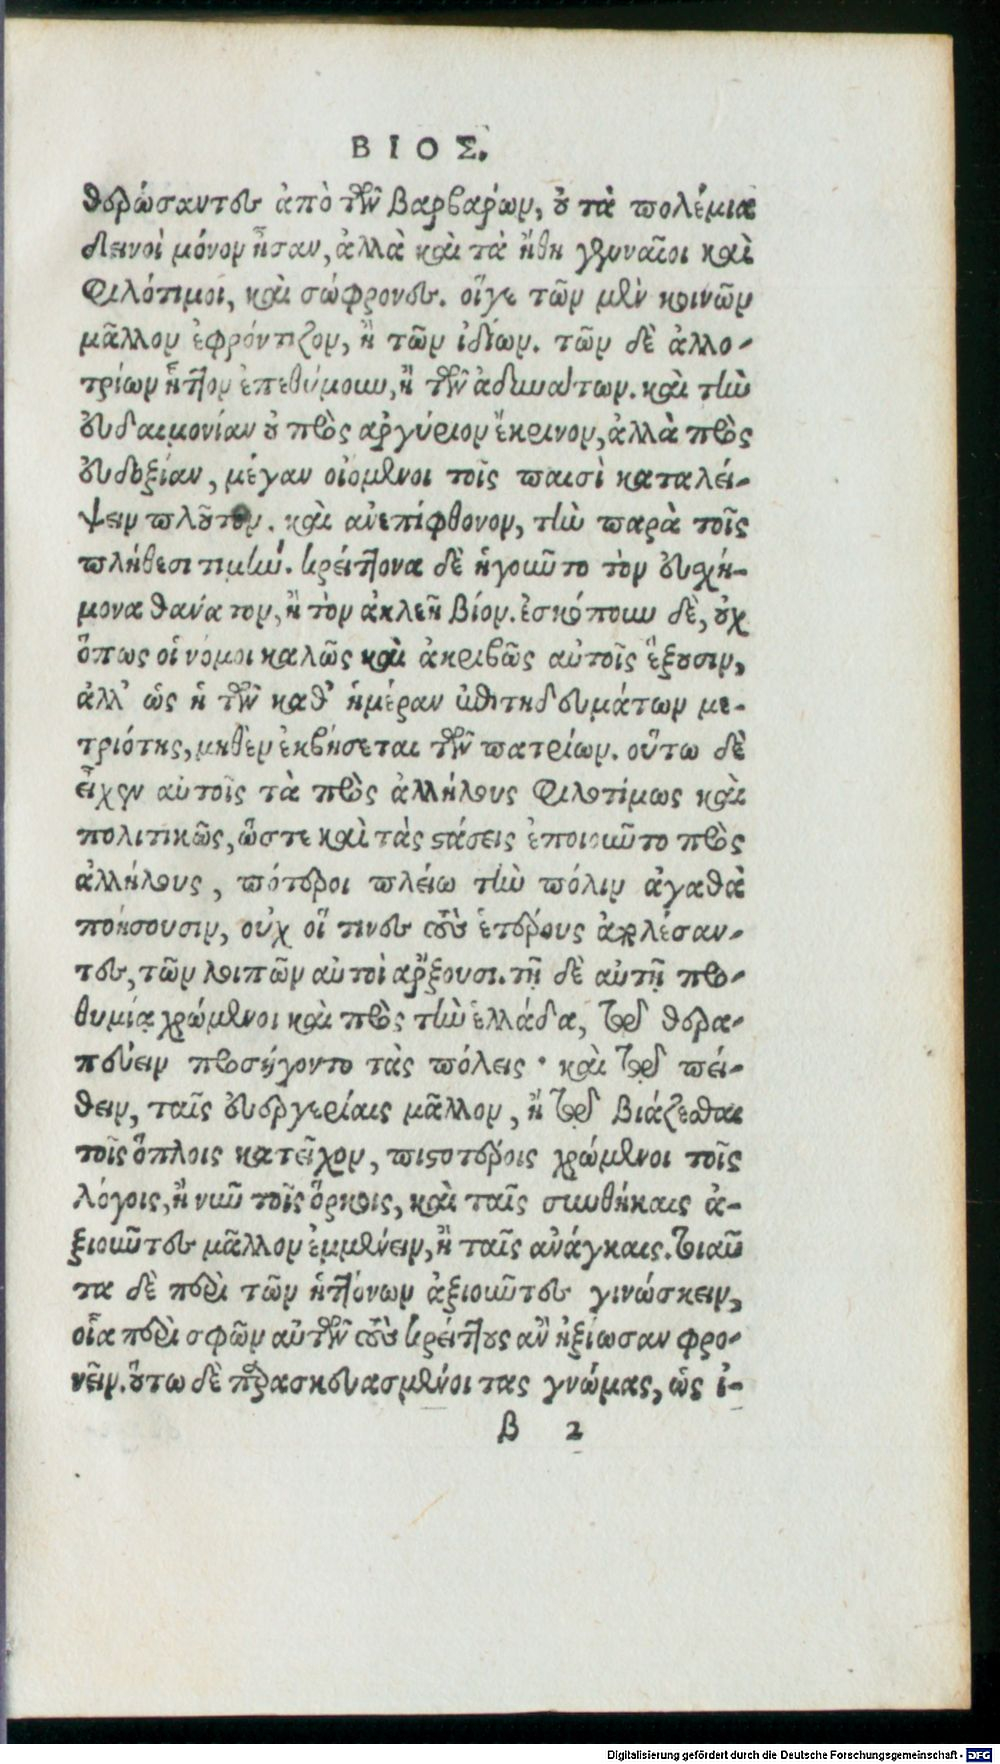 ΒΙΟΣ.
θερώσαντες ἀπὸ τῶν βαρβαρώων, οὐ τὰ πολέμια
δεινοὶ μόνον ἦσαν, ἀλλὰ καὶ τὰ ἤθη γενναῖοι καὶ
φιλότιμοι, καὶ σώφρονες. οἵγε τῶν μὲν κοινῶν
μᾶλλον ἐφρόντιζον, ἢ τῶν ἰδίων. τῶν δὲ ἀλλο-
τρίων ἧττον ἐπεθύμουν, ἢ τῶν ἀδυνάτων. καὶ τὴν
εὐδαιμονίαν οὐ πρὸς ἀργύριον ἔκρινον, ἀλλὰ πρὸς
εὐδοξίαν, μέγαν οἰόμενοι τοῖς παισὶ καταλεί-
ψειν πλοῦτον. καὶ ἀνεπίφθονον, τὴν παρὰ τοῖς
πλήθεσι τιμήν. κρείττονα δὲ ἡγοῦντο τὸν εὐσχή-
μονα θάνατον, ἢ τὸν ἀκλεῆ βίον. ἐσκόπουν δὲ, οὐχ
ὅπως οἱ νόμοι καλῶς καὶ ἀκριβῶς αὐτοῖς ἕξουσιν,
ἀλλ' ὡς ἡ τῶν καθ' ἡμέραν ἐπιτηδευμάτων με-
τριότης, μηθὲν ἐκβήσεται τῶν πατρίων. οὕτω δὲ
εἶχον αὐτοῖς τὰ πρὸς ἀλλήλους φιλοτίμως καὶ
πολιτικῶς, ὥστε καὶ τὰς στάσεις ἐποιοῦντο πρὸς
ἀλλήλους, πότεροι πλείω τὴν πόλιν ἀγαθὰ
ποιήσουσιν, οὐχ οἵ τινες τοὺς ἑτέρους ἀπολέσαν-
τες, τῶν λοιπῶν αὐτοὶ ἄρξουσι. τῇ δὲ αὐτῇ προ-
θυμίᾳ χρώμενοι καὶ πρὸς τὴν ἑλλάδα, τῷ θερα-
πεύειν προσήγοντο τὰς πόλεις· καὶ τῷ πεί-
θειν, ταῖς εὐεργεσίαις μᾶλλον, ἢ τῷ βιάζεσθαι
τοῖς ὅπλοις κατεῖχον, πιστοτέροις χρώμενοι τοῖς
λόγοις, ἢ νῦν τοῖς ὅρκοις, καὶ ταῖς συνθήκαις ἀ-
ξιοῦντες μᾶλλον ἐμμένειν, ἢ ταῖς ἀνάγκαις. τοιαῦ
τα δὲ περὶ τῶν ἡττόνων ἀξιοῦντες γινώσκειν,
οἷα περὶ σφῶν αὐτῶν τοὺς κρείττους ἂν ἠξίωσαν φρο-
νεῖν. οὕτω δὲ παρασκευασμένοι τας γνώμας, ὡς ἰ-
β 2
Digitalisierung gefördert durch die Deutsche Forschungsgemeinschaft - DFG